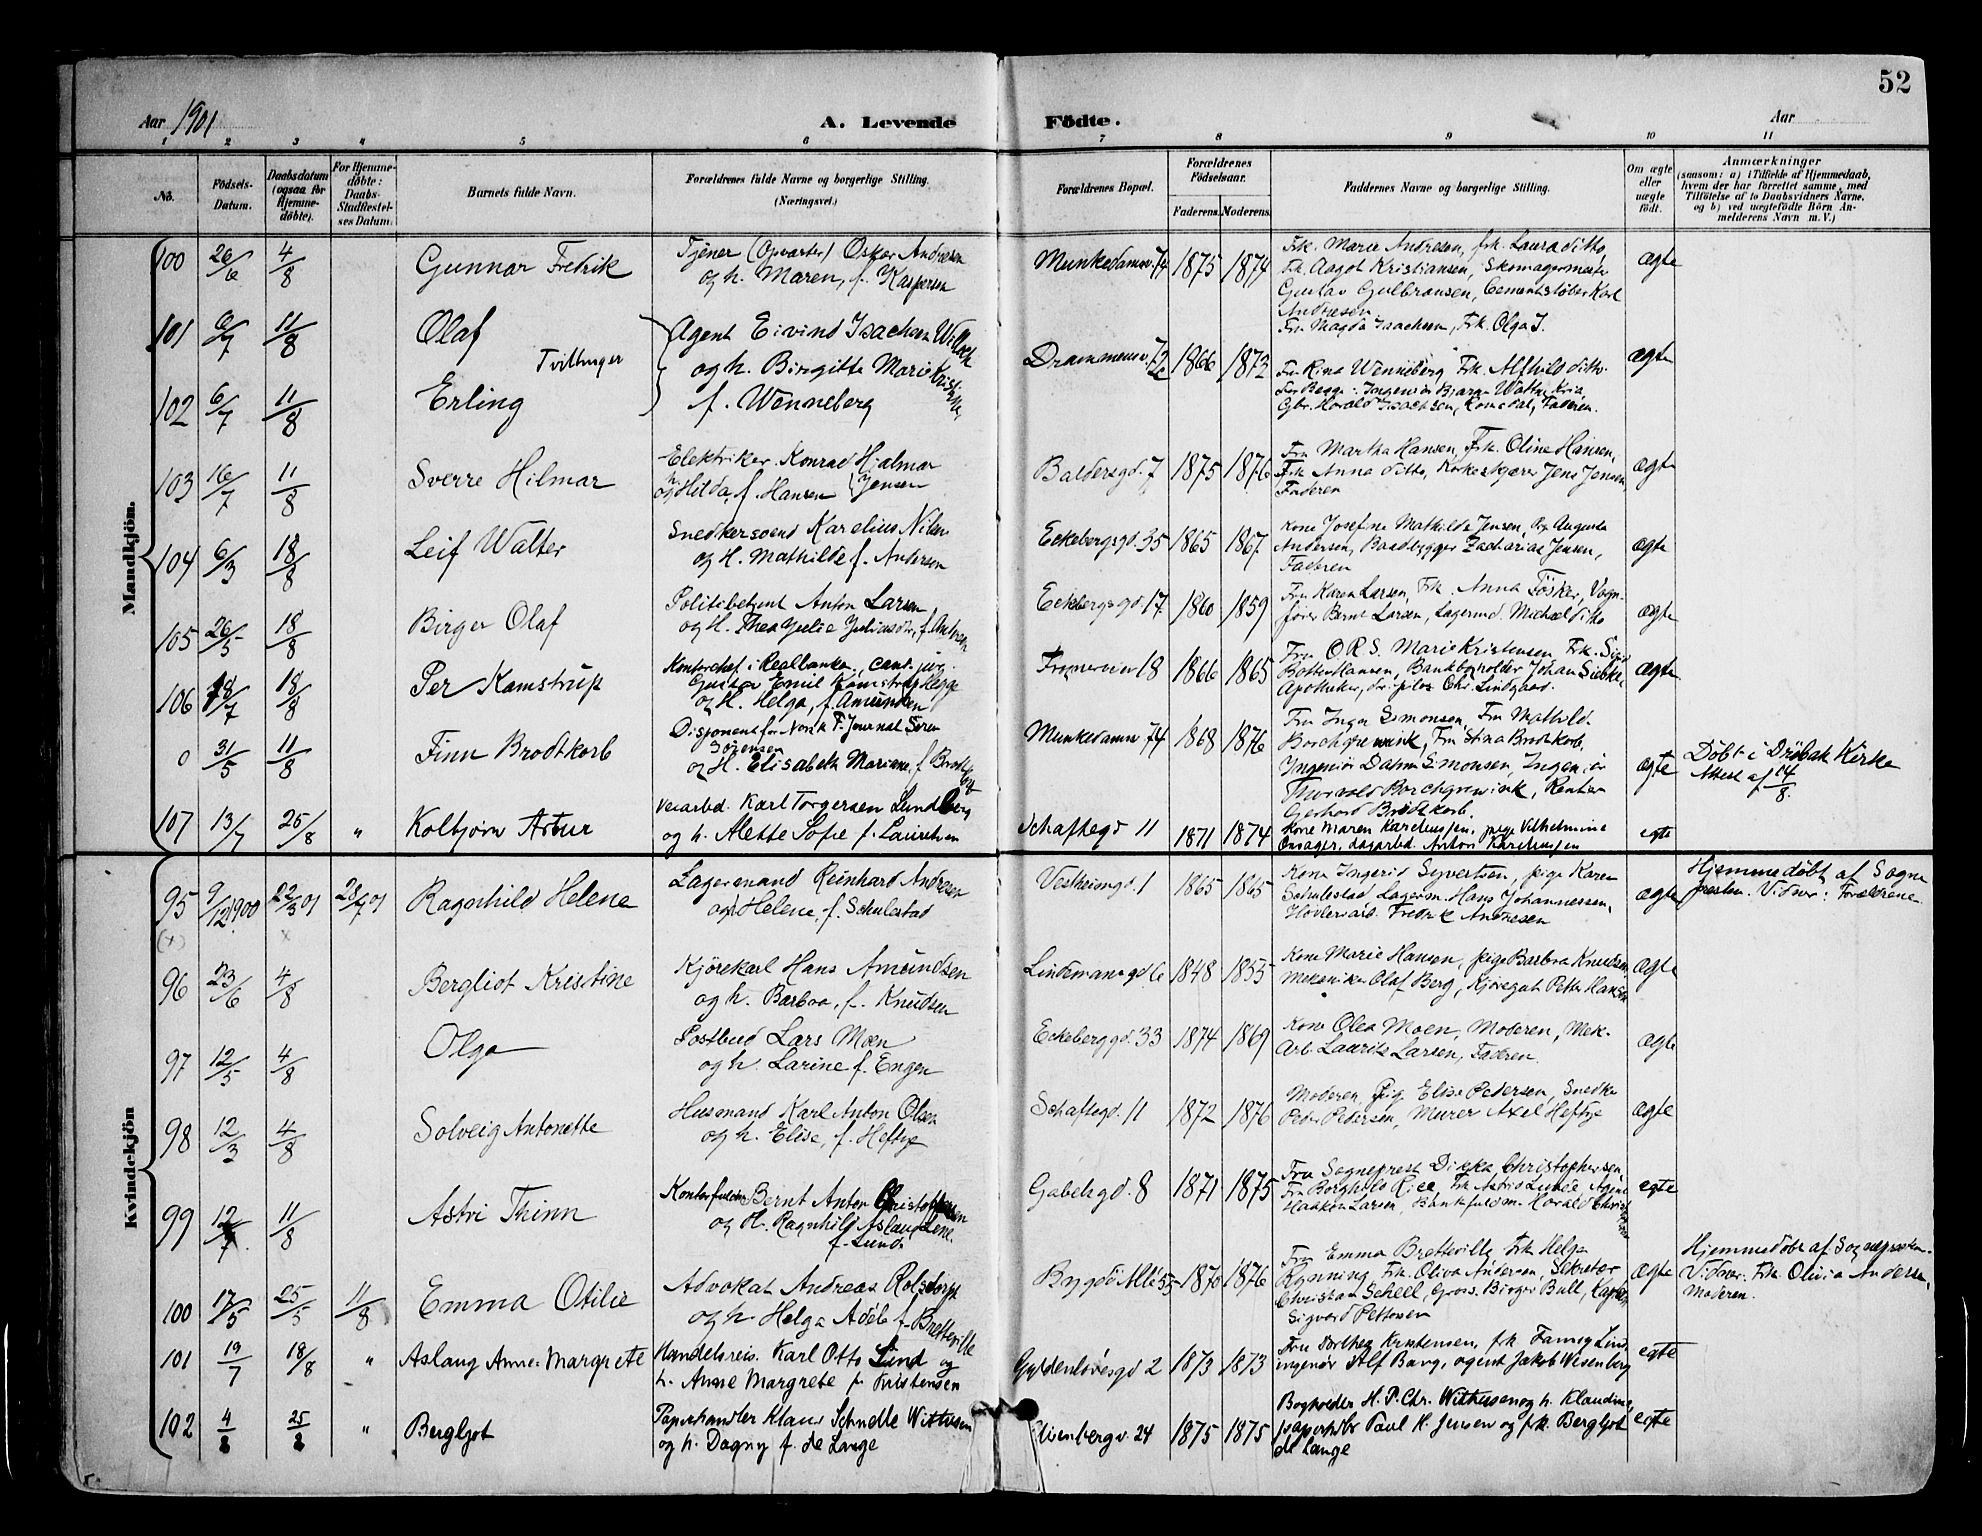 52
Aar 1901
A. Levende Födte.
Aar
1 2 3 4 5 6 7 8 9 10 11
No.
Födsels-Datum.
Daabsdatum (ogsaa for Hjemme-döbte).
For Hjemme-döbte: Daabs-Stadfæstel-ses Datum.
Barnets fulde Navn.
Forældrenes fulde Navne og borgerlige Stilling. (Næringsvei.)
Forældrenes Bopæl.
Forældrenes Födselsaar.
Faderens. Moderens.
Faddernes Navne og borgerlige Stilling.
Om ægte eller uægte födt.
Anmærkninger
(saasom: a) i Tilfælde af Hjemmedaab,
hvem der har forrettet samme, med
Tilföielse af to Daabsvidners Navne,
og b) ved uægtefödte Börn An-
melderens Navn m. V.)
Mandkjön.
100 26/6 4/8 Gunnar Fredrik
Tjener (Opvarter) Oskar Andresen
og h. Maren, f. Kaspersen
Munkedamsv. 74 1875 1874
Frk. Marie Andresen, frk. Laura ditto,
Frk. Aagot Kristiansen, Skomagermester
Gustav Gulbransen, Cementstøber Karl
Andresen
ægte
101 6/7 11/8 Olaf
Tvillinger
102 6/7 11/8 Erling
Agent Eivind Isachsen
og h. Birgitte Marie
f. Wenneberg
Drammensv. 1866 1872
Fru Magda Isachsen, Frk. Olga I.
Fru Rina Wenneberg Frk. Alfhild ditto
For Begge: Ingeniør Bjarne
Gbr. Harald Isachsen, Romsdal, Faderen.
ægte
103 16/7 11/8 Sverre Hilmar
Elektriker Konrad Hjalmar Jensen
og h. Hilda, f. Hansen
Baldersgd. 7 1875 1876
Fru Martha Hansen, Frk. Oline Hansen,
Frk Anna ditto, Jens Jensen
Faderen
ægte
104 6/3 18/8 Leif Walter
Snedkersvend Karelius Nilsen
og H. Mathilde f. Andersen
Eckebergsgd. 35 1865 1867
Kone Josefine Mathilde Jensen, Augusta
Andersen, Baadbygger Zacharias Jensen,
Faderen
ægte
105 26/5 18/8 Birger Olaf
Politibetjent Anton Larsen
og H. Thea Julie
Eckebergsgd 17 1860 1859
Fru Karen Larsen, Frk. Anna Vogn-
fører Bernt Larsen, Lagermd. Michael ditto
ægte
106 18/7 18/8 Per Kamstrup
Kontorchef i Realbanken, cand. jur.
Gustav Emil Kamstrup Hegge
og H. Helga, f. Amundsen
18 1866 1865
Fru O.R.S. Marie Kristensen Frk.
Hansen, Bankbogholder Johan
Apotheker, Chr. Lindgaard.
ægte
0 31/5 11/8 Finn Brodtkorb
Disponent for Norsk F. Journal Søren
Sørensen
og H. Elisabeth Mariane, f. Brodtkorb
Munkedamsv 74 1868 1876
Fru Inga Simonsen, Fru Mathild.
Borchgrewink, Fru Stina Brodtkorb,
Ingeniør Simonsen, Ingeniør
Thorvald Borchgrewink, Rentier
Gerhard Brodtkorb.
ægte
Døbt i Drøbak Kirke
Attest af 14/8.
107 13/7 25/8 " Kolbjørn Artur
Veiarbd. Karl Torgersen Lundberg
og h. Alette Sofie f. Lauritsen
Schaftegd 11 1871 1874
Kone Maren Karelinssen, pige Vilhelmine
dagarbd. Anton
egte
Kvindekjön
95 9/12 1900 22/3 01 28/7 01 Ragnhild Helene
(x) x
Lagermand Reinhard Andresen
og h Helene, f. Schulestad
Vestheimgd. 1 1865 1865
Kone Ingerid Syvertsen, pige Karen
Schulestad Lagerm. Hans Johannessen,
Høvleriarb. Fredrik Andresen
ægte
Hjemmedøbt af Sogne
presten. Vidner: Forældrene
96 23/6 4/8 Bergliot Kristine
Kjørekarl Hans Amundsen
og h. Barbra, f. Knudsen
Lindemansgd. 6 1848 1855
Kone Marie Hansen, pige Barbra Knudsen
Mekaniker Olaf Berg, Kjøregut Petter Hansen
ægte
97 12/5 4/8 Olga
Postbud Lars Moen
og h. Larine f. Engen
Eckeberggd. 33 1874 1869
Kone Olea Moen, Moderen, Mek-
Arb. Laurits Larsen, Faderen.
ægte
98 12/3 4/8 Solveig Antonette
Husmand Karl Anton Olsen
og h. Elise, f. Heftye
Schaftegd. 11 1872 1876
Moderen, Pig. Elise Pedersen, Snedker
Peder Pedersen, Murer Axel Heftye
ægte
99 12/7 11/8 Astri Thinn
Kontorfuldm Bernt Anton Christophersen
og H. Ragnhild Aslaug Lene
f. Lund.
Gabelsgd. 8 1871 1875
Fru Sogneprest Dikka Christophersen,
Fru Borghild Rice Frk Astrid Lunde Agent
Haakon Larsen, Bankfuldm. Harald
egte
100 17/5 25/5 11/8 Emma Otilie
Advokat Andreas Rolsdorph
og h. Helga Adéle f. Bretteville
Bygdö Allé 55 1870 1876
Fru Emma Bretteville Frk Helga
Rynning Frk. Oliva Andersen, Sekretær
Christian Scheel, Gross. Birger Bull, Kapt.
Sigvard Pettersen
ægte
Hjemmedøbt af Sognepresten.
Vidner. Frk. Olivia Andersen,
Moderen.
101 19/7 18/8 " Aslaug Anne-Margrete
Handelsreis. Karl Otto Lund og
h. Anne Margrete f. Kristensen
Gyldenløvesgd 2 1873 1873
Fru Dorthea Kristensen, frk. Fanny Lind,
ingeniør Alf Bang, agent Jakob Wesenberg
egte
102 4/8 25/8 " Bergljot
Papirhandler Klaus Schnelle Withusen
og h. Dagny f. de Lange
Elisenbergv. 24 1875 1875
Bogholder H. P. Chr. Withusen og h. Klaudine,
papirhdlr Paul H. Jensen og frk. Bergljot
de Lange
egte